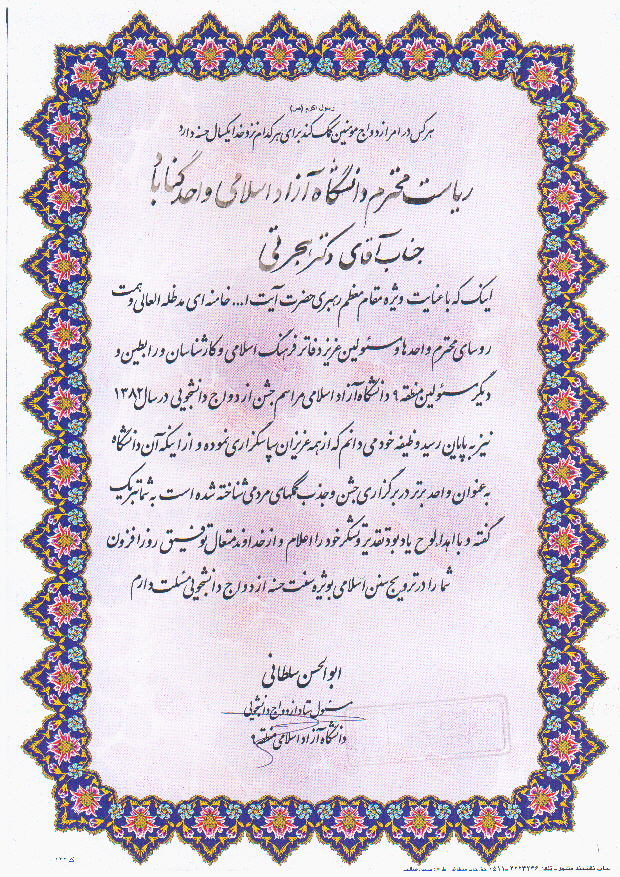 رسول اکرم (ص)
هر کس در امر ازدواج مؤمنین کمک کند برای هر کدام نزد خدا یکسال حسنه دارد
ریاست محترم دانشگاه آزاد اسلامی واحد گناباد
جناب آقای دکتر هجرتی
اینک که با عنایت ویژه مقام معظم رهبری حضرت آیت ا... خامنه ای مدظله العالی و همت
روسای محترم واحدها و مسئولین عزیز دفاتر فرهنگ اسلامی و کارشناسان و رابطین و
دیگر مسئولین منطقه ۹ دانشگاه آزاد اسلامی مراسم جشن ازدواج دانشجویی در سال ۱۳۸۳
نیز به پایان رسید وظیفه خود می دانم که از همه عزیزان سپاسگزاری نموده و از اینکه آن دانشگاه
به عنوان واحد برتر در برگزاری جشن و جذب کمکهای مردمی شناخته شده است به شما تبریک
گفته و با اهدا لوح یادبود تقدیر و تشکر خود را اعلام و از خداوند متعال توفیق روز افزون
شما را در ترویج سنن اسلامی بویژه سنت حسنه ازدواج دانشجویی مسئلت دارم
ابوالحسن سلطانی
مسئول ستاد ازدواج دانشجویی
دانشگاه آزاد اسلامی منطقه ۹